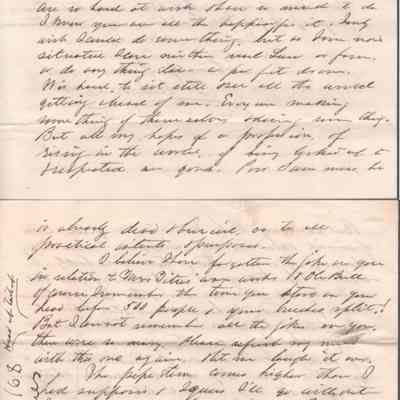 are so hard at work when so much to do
I know you are all the happier for it. I only
wish I could do something, but as I am now
situated I can neither read Law or farm,
or do any thing else
'Tis hard, to sit still & see all the world
getting ahead of me. Every one making
something of themselves & having something.
But all my hopes of a profession, of
rising in the world, of being looked up to &
respected are gone. must be
is already dead & buried, as to all
practical intents & purposes.
I believe I have forgotten the joke on you
in relation to works & Ole Bull
of course I remember the time you before on your
head before 500 people & your breeches split!
But I do not remember all the jokes on you,
there were so many. Please refresh my mind
with this one again. Let me laugh it over.
The pipe stem comes higher than I
had supposed & I guess I'll go without
168